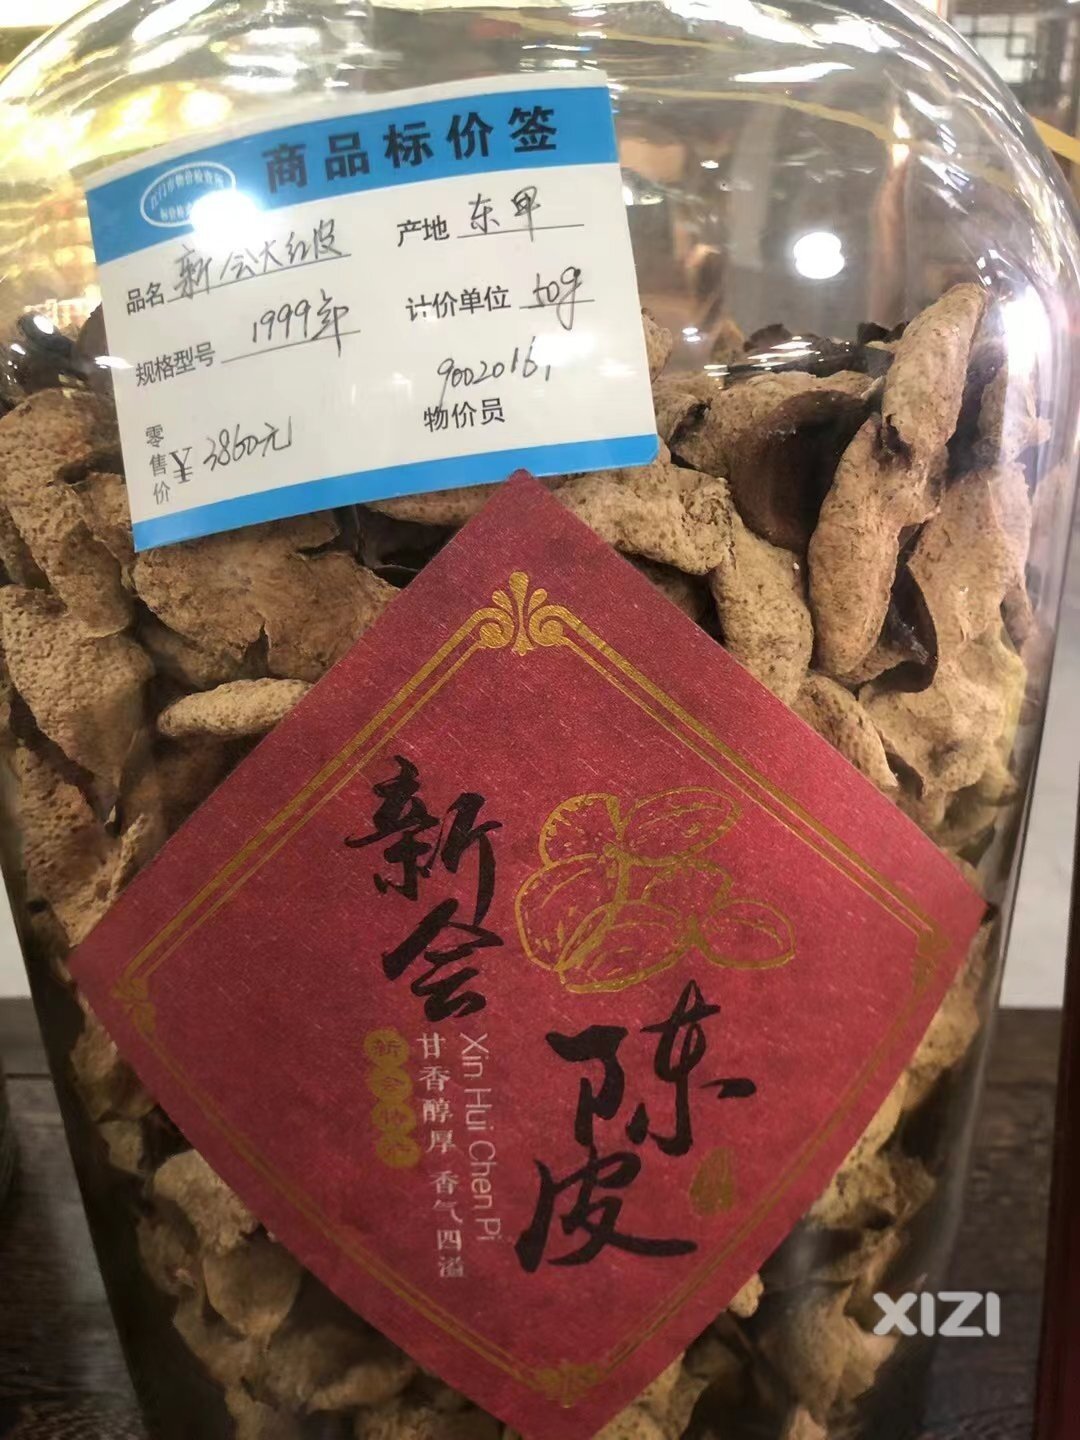 商品标价签
品名 新会大红皮 产地 东甲
规格型号 1999年 计价单位 50g
零售价 ¥3860元 物价员 9002016,
新会
陈皮
Xin Hui Chen Pi
甘香醇厚 香气四溢
XIZI